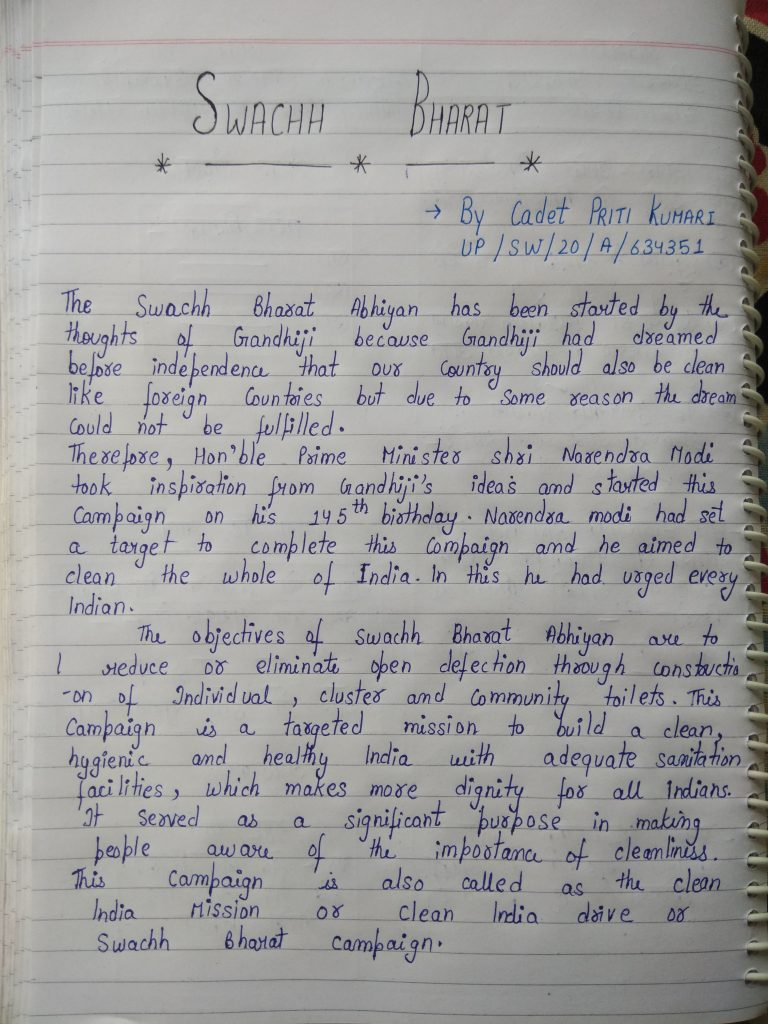 SWACHH BHARAT
* ——— * ——— *
→ By Cadet PRITI KUMARI
UP/SW/20/A/634351
The Swachh Bharat Abhiyan has been started by the
thoughts of Gandhiji because Gandhiji had dreamed
before independence that our Country should also be clean
like foreign Countries but due to some reason the dream
Could not be fulfilled.
Therefore, Hon'ble Prime Minister shri Narendra Modi
took inspiration from Gandhiji's ideas and started this
Campaign on his 145th birthday. Narendra modi had set
a target to complete this Campaign and he aimed to
clean the whole of India. In this he had urged every
Indian.
The objectives of Swachh Bharat Abhiyan are to
reduce or eliminate open defection through constructio
-on of Individual, cluster and Community toilets. This
Campaign is a targeted mission to build a clean,
hygienic and healthy India with adequate sanitation
facilities, which makes more dignity for all Indians.
It Served as a significant purpose in making
people aware of the importance of cleanliness.
This Campaign is also called as the clean
India Mission or Clean India drive or
Swachh Bharat Campaign.